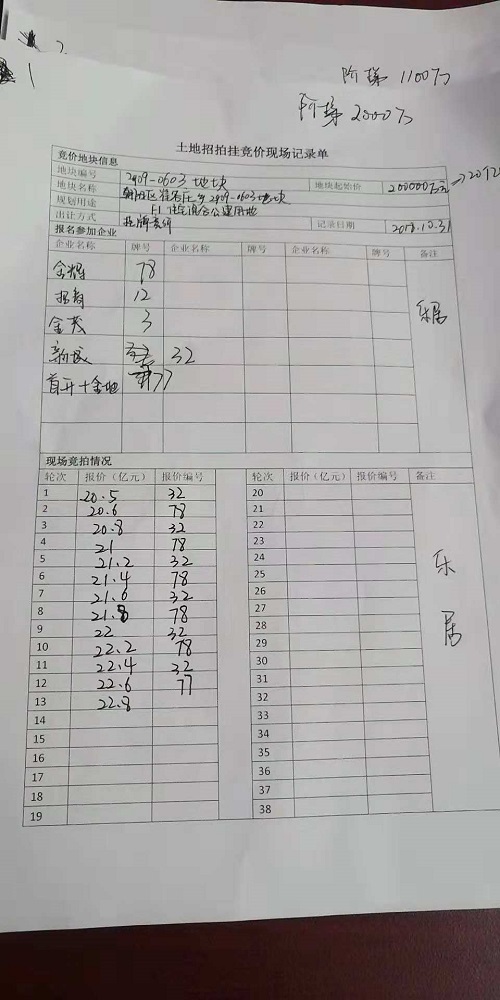 阶梯 1100万
阶梯 2000万
土地招拍挂竞价现场记录单
竞价地块信息
地块编号 2909-0603地块 地块起始价 200000万元
地块名称 朝阳区崔各庄乡2909-0603地块
规划用途 F1住宅混合公建用地
出让方式 挂牌竞价 记录日期 2018.10.31
报名参加企业
企业名称 牌号 企业名称 牌号 企业名称 牌号 备注
金辉 78
招商 12
金茂 3
新城 32
首开+金地 77
乐居
现场竞拍情况
轮次 报价(亿元) 报价编号 轮次 报价(亿元) 报价编号 备注
1 20.5 32 20
2 20.6 78 21
3 20.8 32 22
4 21 78 23
5 21.2 32 24
6 21.4 78 25
7 21.6 32 26
8 21.8 78 27
9 22 32 28
10 22.2 78 29
11 22.4 32 30
12 22.6 77 31
13 22.8 32
14 33
15 34
16 35
17 36
18 37
19 38
乐
居